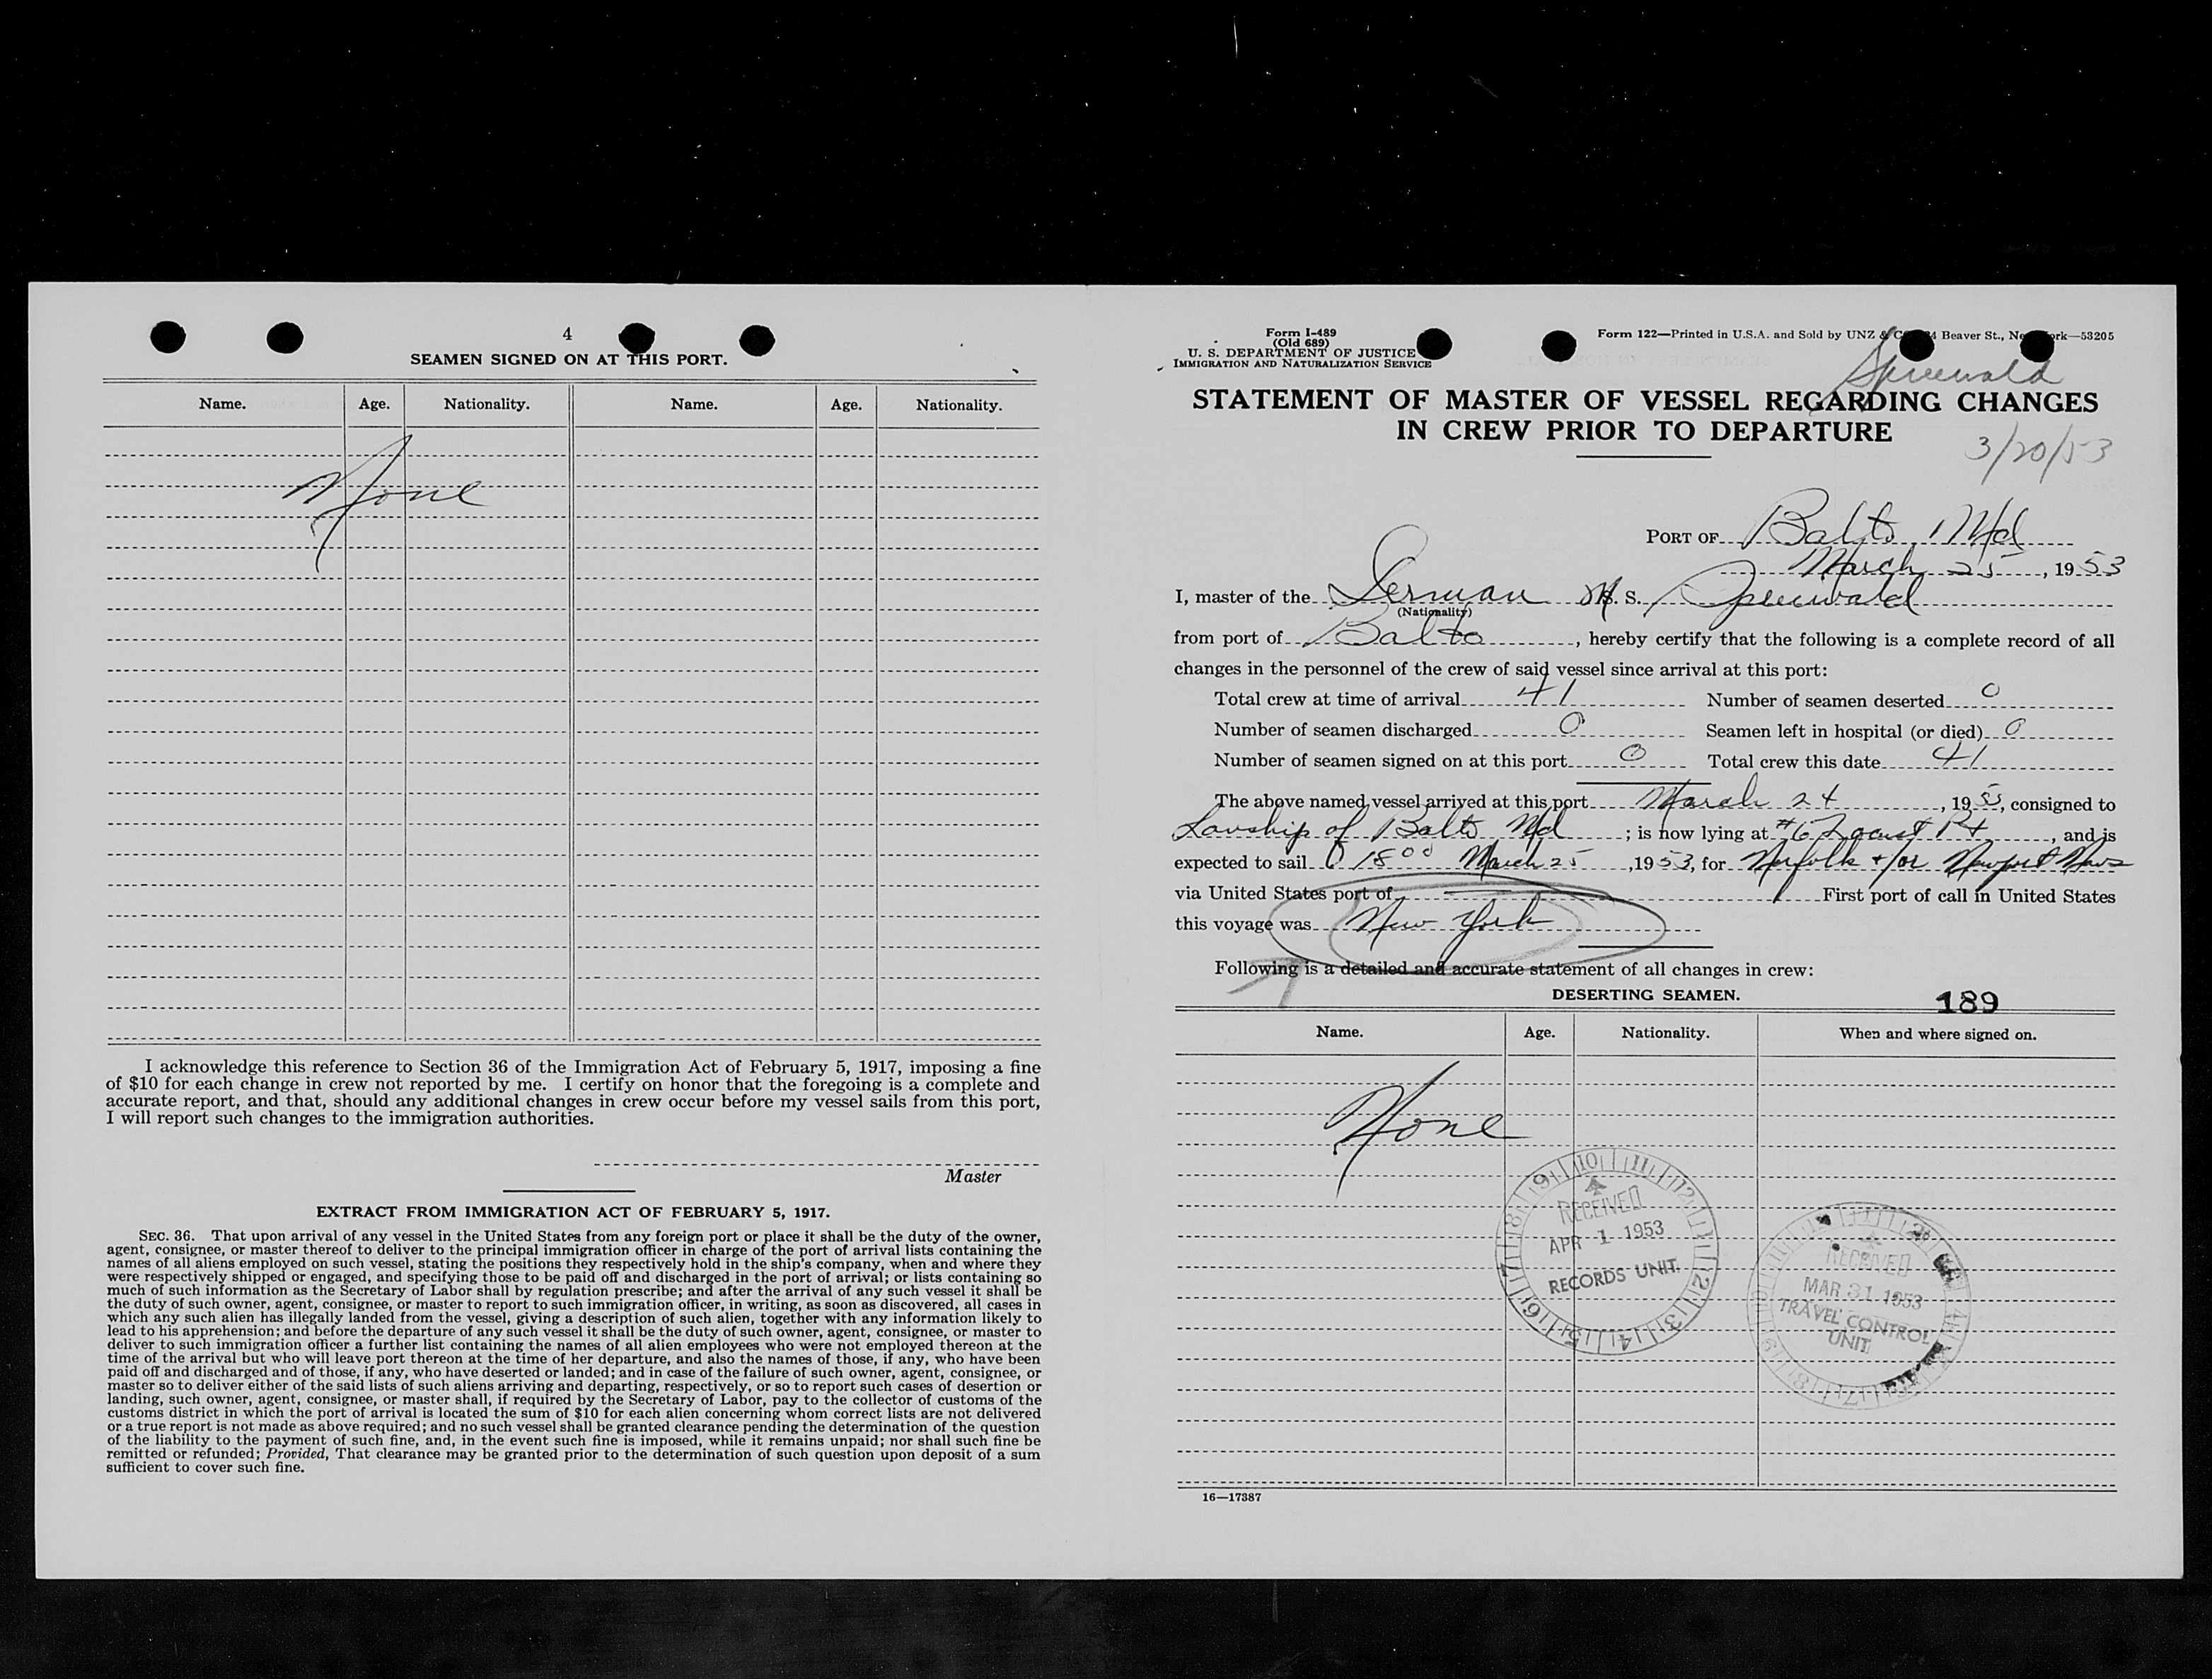 4
SEAMEN SIGNED ON AT THIS PORT.
Name. Age. Nationality. Name. Age. Nationality.
None
I acknowledge this reference to Section 36 of the Immigration Act of February 5, 1917, imposing a fine
of $10 for each change in crew not reported by me. I certify on honor that the foregoing is a complete and
accurate report, and that, should any additional changes in crew occur before my vessel sails from this port,
I will report such changes to the immigration authorities.
Master
EXTRACT FROM IMMIGRATION ACT OF FEBRUARY 5, 1917.
SEC. 36. That upon arrival of any vessel in the United States from any foreign port or place it shall be the duty of the owner,
agent, consignee, or master thereof to deliver to the principal immigration officer in charge of the port of arrival lists containing the
names of all aliens employed on such vessel, stating the positions they respectively hold in the ship's company, when and where they
were respectively shipped or engaged, and specifying those to be paid off and discharged in the port of arrival; or lists containing so
much of such information as the Secretary of Labor shall by regulation prescribe; and after the arrival of any such vessel it shall be
the duty of such owner, agent, consignee, or master to report to such immigration officer, in writing, as soon as discovered, all cases in
which any such alien has illegally landed from the vessel, giving a description of such alien, together with any information likely to
lead to his apprehension; and before the departure of any such vessel it shall be the duty of such owner, agent, consignee, or master to
deliver to such immigration officer a further list containing the names of all alien employees who were not employed thereon at the
time of the arrival but who will leave port thereon at the time of her departure, and also the names of those, if any, who have been
paid off and discharged and of those, if any, who have deserted or landed; and in case of the failure of such owner, agent, consignee, or
master so to deliver either of the said lists of such aliens arriving and departing, respectively, or so to report such cases of desertion or
landing, such owner, agent, consignee, or master shall, if required by the Secretary of Labor, pay to the collector of customs of the
customs district in which the port of arrival is located the sum of $10 for each alien concerning whom correct lists are not delivered
or a true report is not made as above required; and no such vessel shall be granted clearance pending the determination of the question
of the liability to the payment of such fine, and, in the event such fine is imposed, while it remains unpaid; nor shall such fine be
remitted or refunded; Provided, That clearance may be granted prior to the determination of such question upon deposit of a sum
sufficient to cover such fine.
Form I-489
(Old 689)
U. S. DEPARTMENT OF JUSTICE
IMMIGRATION AND NATURALIZATION SERVICE
Form 122—Printed in U.S.A. and Sold by UNZ & Beaver St., 53205
Spreewald
STATEMENT OF MASTER OF VESSEL REGARDING CHANGES
IN CREW PRIOR TO DEPARTURE
3/20/53
PORT OF Balto, Md
March 25, 1953
I, master of the German M. S. Spreewald
(Nationality)
from port of Balto, hereby certify that the following is a complete record of all
changes in the personnel of the crew of said vessel since arrival at this port:
Total crew at time of arrival 41 Number of seamen deserted 0
Number of seamen discharged 0 Seamen left in hospital (or died) 0
Number of seamen signed on at this port 0 Total crew this date 41
The above named vessel arrived at this port March 24, 1953, consigned to
of Balto Md; is now lying at #6 Locust Pt, and is
expected to sail 1800 March 25, 1953, for Norfolk + /or Newport News
via United States port of First port of call in United States
this voyage was New York
Following is a detailed and accurate statement of all changes in crew:
DESERTING SEAMEN.
189
Name. Age. Nationality. When and where signed on.
None
RECEIVED
APR 1 1953
RECORDS UNIT
RECEIVED
MAR 31 1953
TRAVEL CONTROL
UNIT
16—17387